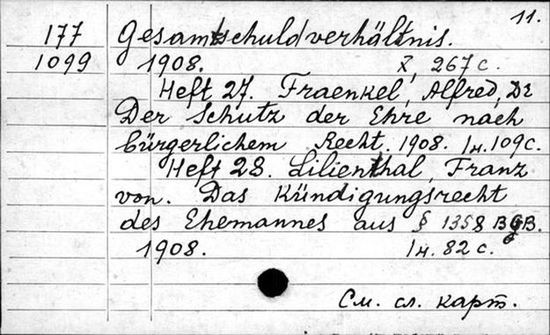 11.
177 Gesamtschuldverhältnis.
1099 1908. X, 267 c.
Heft 27. Fraenkel, Alfred, Dr
Der Schutz der Ehre nach
bürgerlichem Recht. 1908. 1 н. 109 c.
Heft 28. Lilienthal, Franz
von. Das Kündigungsrecht
des Ehemannes aus § 1358 BGB.
1908. 1 н. 82 c.
См. сл. карт.